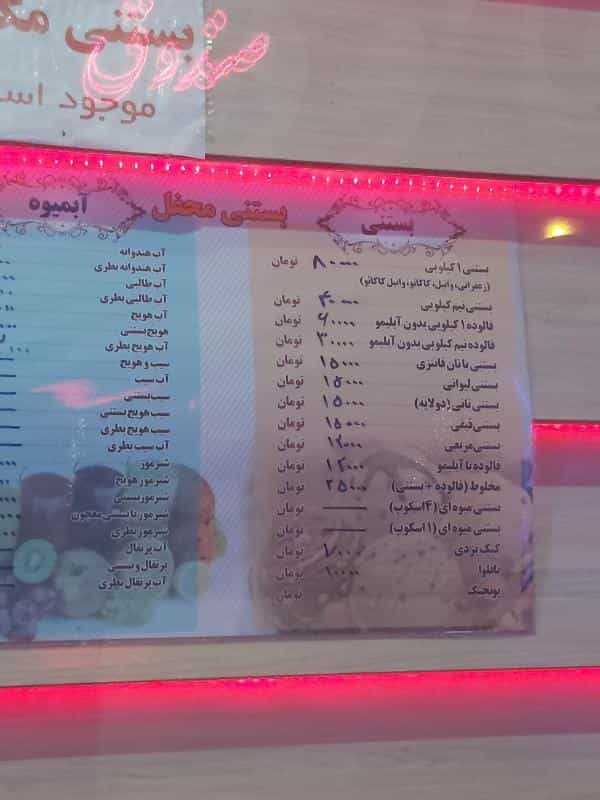 بستنی
صندوق
موجود
بستنی محفل
بستنی
بستنی ۱ کیلویی ۸۰۰۰۰ تومان
(زعفرانی، وانیل، کاکائو، وانیل کاکائو)
بستنی نیم کیلویی ۴۰۰۰۰ تومان
فالوده ۱ کیلویی بدون آبلیمو ۶۰۰۰۰ تومان
فالوده نیم کیلویی بدون آبلیمو ۳۰۰۰۰ تومان
بستنی با نان فانتزی ۱۵۰۰۰ تومان
بستنی لیوانی ۱۵۰۰۰ تومان
بستنی نانی (دولایه) ۱۵۰۰۰ تومان
بستنی قیفی ۱۵۰۰۰ تومان
بستنی مربعی ۱۲۰۰۰ تومان
فالوده با آبلیمو ۱۲۰۰۰ تومان
مخلوط (فالوده + بستنی) ۲۵۰۰۰ تومان
بستنی میوه ای (۴ اسکوپ) تومان
بستنی میوه ای (۱ اسکوپ) تومان
کیک یزدی تومان
باقلوا ۱۰۰۰۰ تومان
تومان
آبمیوه
آب هندوانه
آب هندوانه بطری
آب طالبی
آب طالبی بطری
آب هویج
هویج بستنی
آب هویج بطری
سیب و هویج
آب سیب
سیب بستنی
سیب هویج بستنی
سیب هویج بطری
آب سیب بطری
شیرموز
شیرموز هویج
شیرموز بستنی
شیرموز با بستنی معجون
شیرموز بطری
آب پرتقال
پرتقال و بستنی
آب پرتقال بطری